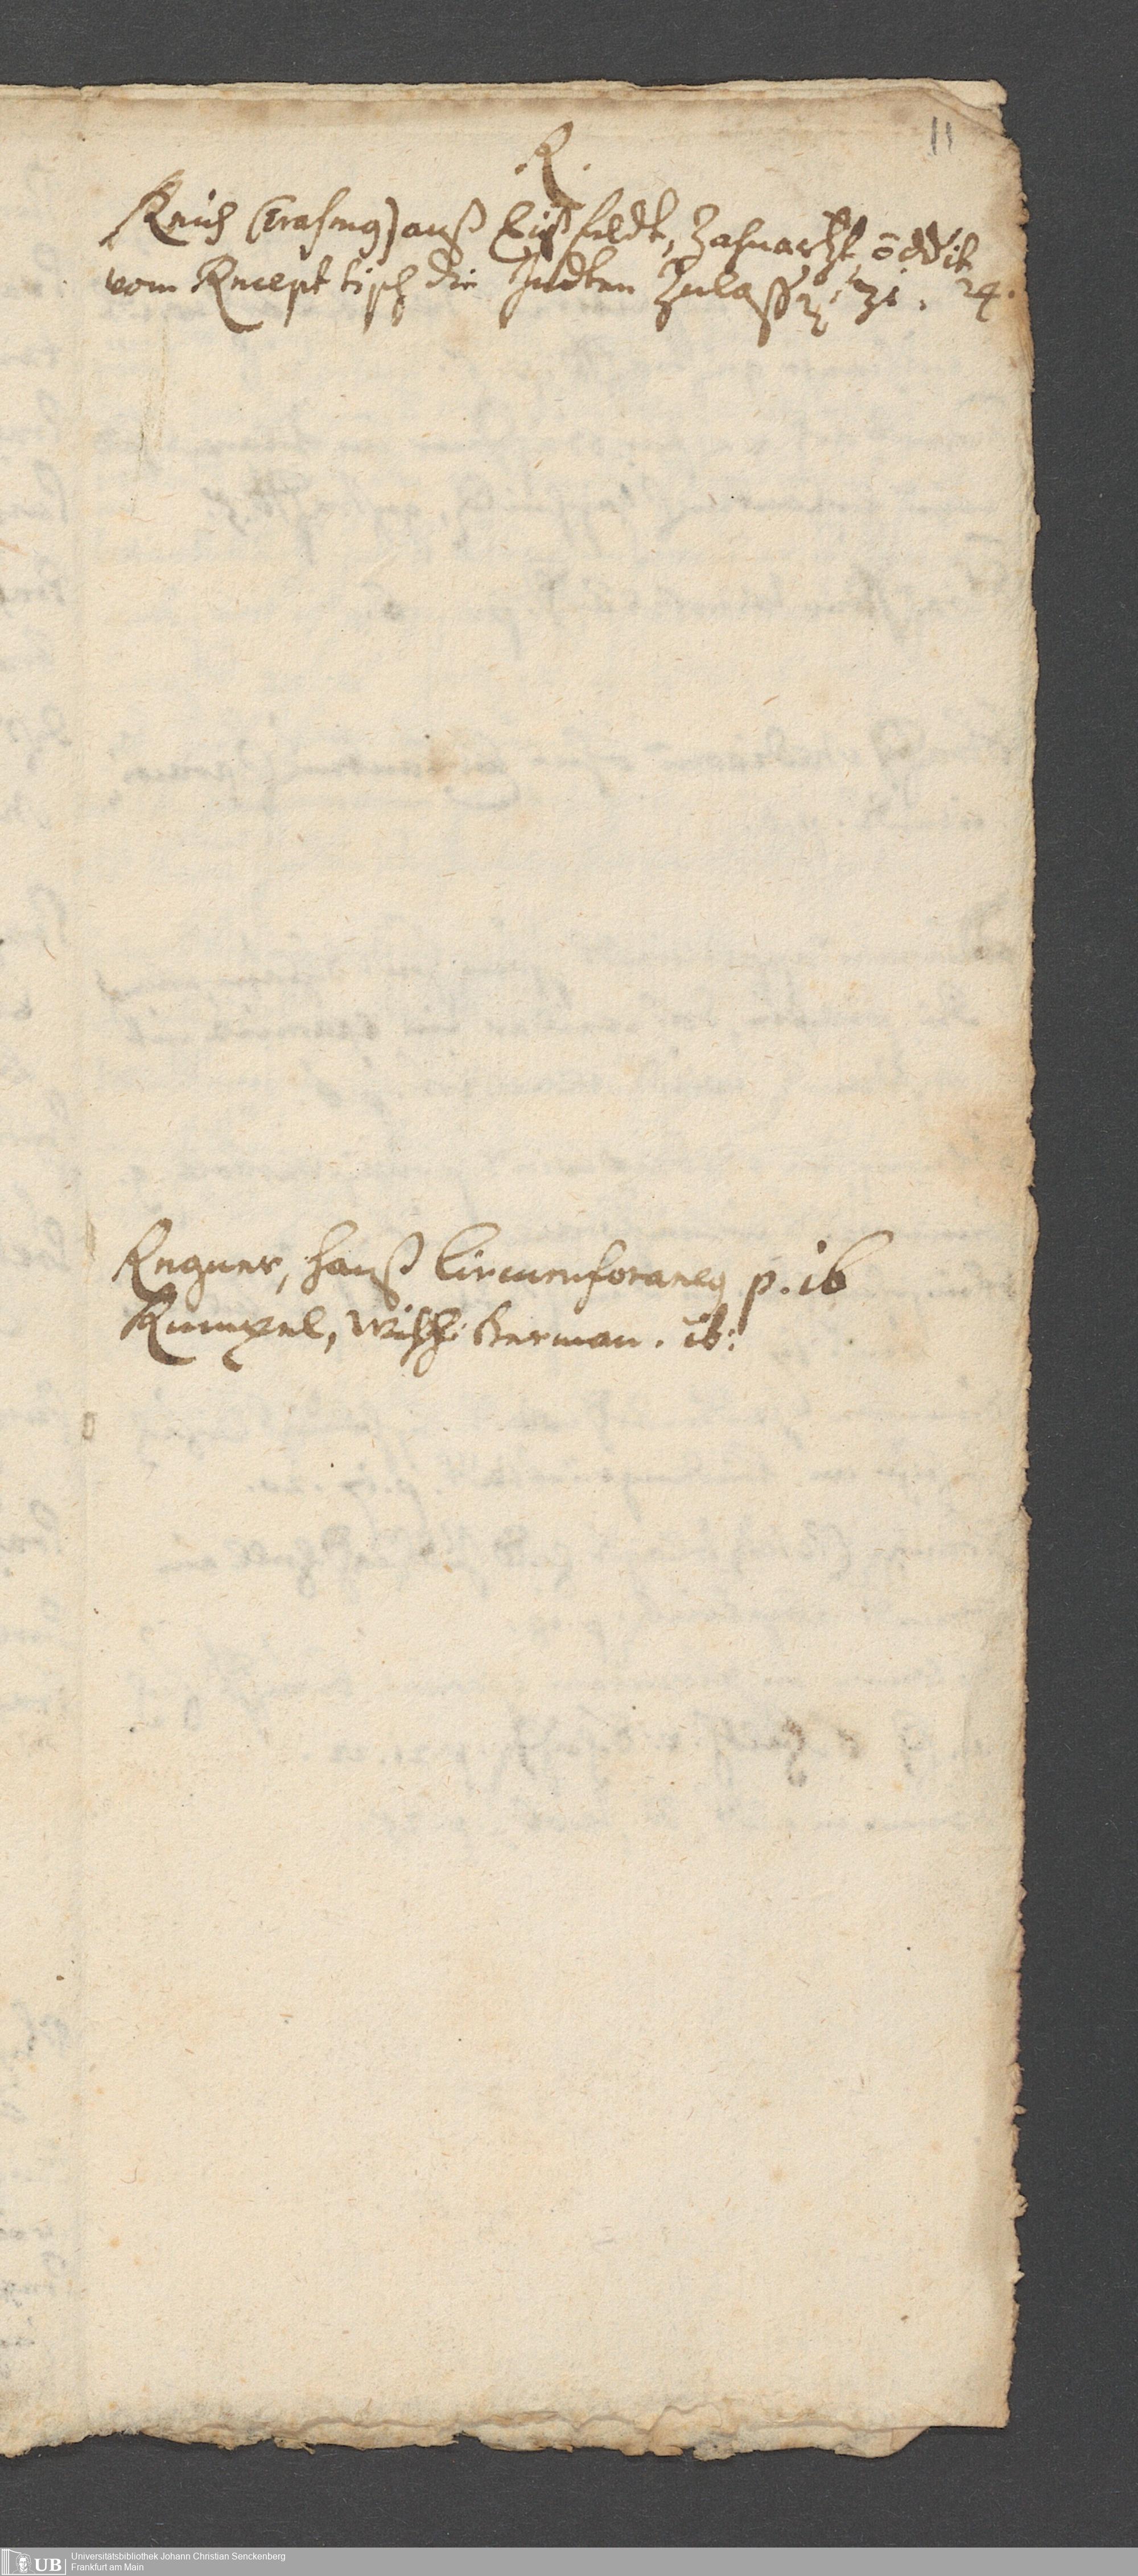 11
.R.
Reich (Erasmus) auß Eißfeldt, Zahnarzt
vom Recept tisch die Jndten Zulaß 31. 24.
Regner, Hanß Circumforaneus p. 16
Rumpel, German. ib:
UB Universitätsbibliothek Johann Christian Senckenberg
Frankfurt am Main